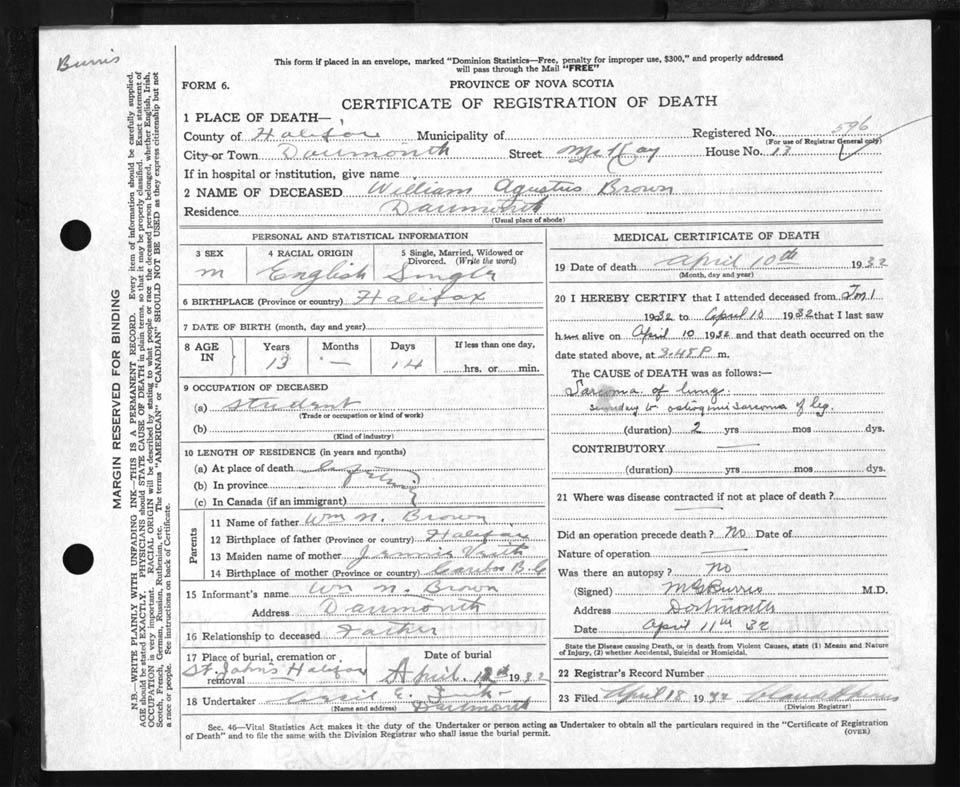 Burris
This form if placed in an envelope, marked "Dominion Statistics—Free, penalty for improper use, $300," and properly addressed
will pass through the Mail "FREE"
FORM 6.
PROVINCE OF NOVA SCOTIA
CERTIFICATE OF REGISTRATION OF DEATH
1 PLACE OF DEATH—
County of Halifax Municipality of Registered No. 596
(For use of Registrar General only)
City or Town Dartmouth Street McKay House No. 13
If in hospital or institution, give name
2 NAME OF DECEASED William Agustus Brown
Residence Dartmouth
(Usual place of abode)
PERSONAL AND STATISTICAL INFORMATION
3 SEX 4 RACIAL ORIGIN 5 Single, Married, Widowed or
Divorced. (Write the word)
m English Single
6 BIRTHPLACE (Province or country) Halifax
7 DATE OF BIRTH (month, day and year)
8 AGE IN Years Months Days If less than one day,
13 — 14 hrs. or min.
9 OCCUPATION OF DECEASED
(a) Student
(Trade or occupation or kind of work)
(b)
(Kind of industry)
10 LENGTH OF RESIDENCE (in years and months)
(a) At place of death
(b) In province
(c) In Canada (if an immigrant)
Parents
11 Name of father Wm N. Brown
12 Birthplace of father (Province or country) Halifax
13 Maiden name of mother Jennie
14 Birthplace of mother (Province or country) Cariboo B.C
15 Informant's name Wm N. Brown
Address Dartmouth
16 Relationship to deceased Father
17 Place of burial, cremation or removal Date of burial
St. John's Halifax April 1932
18 Undertaker Cecil E.
(Name and address) Dartmouth
MEDICAL CERTIFICATE OF DEATH
19 Date of death April 10th 1932
(Month, day and year)
20 I HEREBY CERTIFY that I attended deceased from
1932 to April 10 1932 that I last saw
him alive on April 10 1932 and that death occurred on the
date stated above, at 3.45 P. m.
The CAUSE OF DEATH was as follows:—
Sarcoma of lung.
osteogenic sarcoma of leg.
(duration) 2 yrs mos dys.
CONTRIBUTORY —
(duration) yrs mos dys.
21 Where was disease contracted if not at place of death?
—
Did an operation precede death? No Date of
Nature of operation —
Was there an autopsy? No
(Signed) Burris M.D.
Address Dartmouth
Date April 11th 32
State the Disease causing Death, or in death from Violent Causes, state (1) Means and Nature
of Injury, (2) whether Accidental, Suicidal or Homicidal.
22 Registrar's Record Number
23 Filed April 18 1932
(Division Registrar)
Sec. 46—Vital Statistics Act makes it the duty of the Undertaker or person acting as Undertaker to obtain all the particulars required in the "Certificate of Registration
of Death" and to file the same with the Division Registrar who shall issue the burial permit.
(OVER)
MARGIN RESERVED FOR BINDING
N.B.—WRITE PLAINLY WITH UNFADING INK—THIS IS A PERMANENT RECORD. Every item of information should be carefully supplied.
AGE should be stated EXACTLY. PHYSICIANS should STATE CAUSE OF DEATH in plain terms, so that it may be properly classified. Exact statement of
OCCUPATION is very important. RACIAL ORIGIN will be described by stating to what people or race the deceased person belonged, whether English, Irish,
Scotch, French, German, Russian, Ruthenian, etc. The terms "AMERICAN" or "CANADIAN" SHOULD NOT BE USED as they express citizenship but not
a race or people. See instructions on back of Certificate.